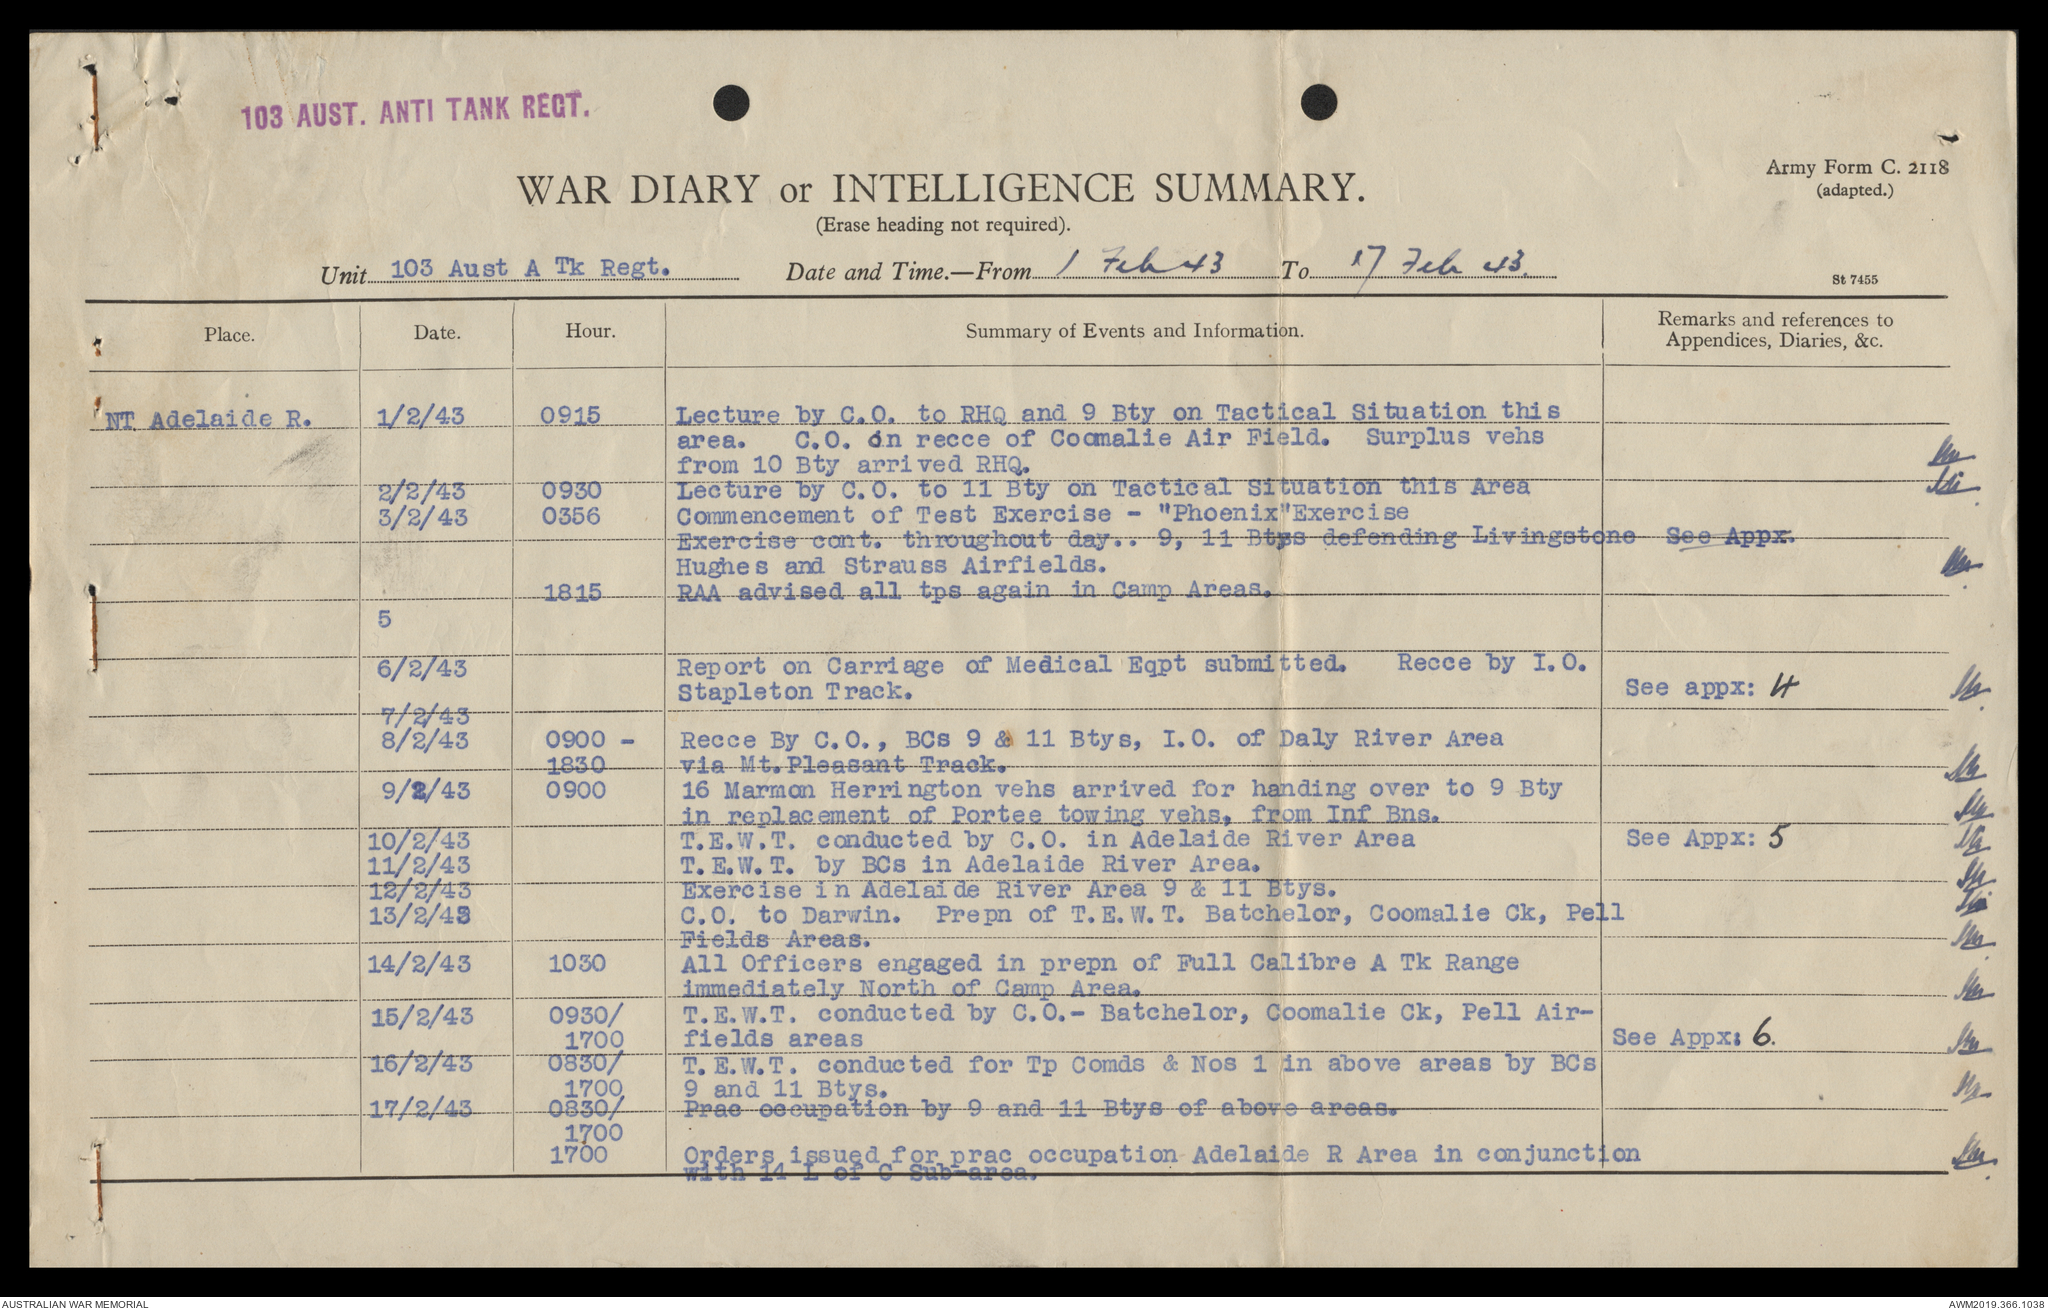 103 AUST. ANTI TANK REGT.
Army Form C. 2118
(adapted.)
WAR DIARY or INTELLIGENCE SUMMARY.
(Erase heading not required).
Unit 103 Aust A Tk Regt. Date and Time.—From 1 Feb 43 To 17 Feb 43.
St 7455
Place. Date. Hour. Summary of Events and Information. Remarks and references to
Appendices, Diaries, &c.
NT Adelaide R. 1/2/43 0915 Lecture by C.O. to RHQ and 9 Bty on Tactical Situation this
area. C.O. on recce of Coomalie Air Field. Surplus vehs
from 10 Bty arrived RHQ.
2/2/43 0930 Lecture by C.O. to 11 Bty on Tactical Situation this Area
3/2/43 0356 Commencement of Test Exercise - "Phoenix"Exercise
Exercise cont. throughout day.. 9, 11 Btys defending Livingstone See Appx.
Hughes and Strauss Airfields.
1815 RAA advised all tps again in Camp Areas.
5
6/2/43 Report on Carriage of Medical Eqpt submitted. Recce by I.O.
Stapleton Track. See appx: 4
7/2/43
8/2/43 0900 - Recce By C.O., BCs 9 & 11 Btys, I.O. of Daly River Area
1830 via Mt.Pleasant Track.
9/2/43 0900 16 Marmon Herrington vehs arrived for handing over to 9 Bty
in replacement of Portee towing vehs, from Inf Bns.
10/2/43 T.E.W.T. conducted by C.O. in Adelaide River Area See Appx: 5
11/2/43 T.E.W.T. by BCs in Adelaide River Area.
12/2/43 Exercise in Adelaide River Area 9 & 11 Btys.
13/2/43 C.O. to Darwin. Prepn of T.E.W.T. Batchelor, Coomalie Ck, Pell
Fields Areas.
14/2/43 1030 All Officers engaged in prepn of Full Calibre A Tk Range
immediately North of Camp Area.
15/2/43 0930/ T.E.W.T. conducted by C.O.- Batchelor, Coomalie Ck, Pell Air-
1700 fields areas See Appx: 6.
16/2/43 0830/ T.E.W.T. conducted for Tp Comds & Nos 1 in above areas by BCs
1700 9 and 11 Btys.
17/2/43 0830/ Prac occupation by 9 and 11 Btys of above areas.
1700
1700 Orders issued for prac occupation Adelaide R Area in conjunction
with 14 L of C Sub-area.
AUSTRALIAN WAR MEMORIAL AWM2019.366.1038